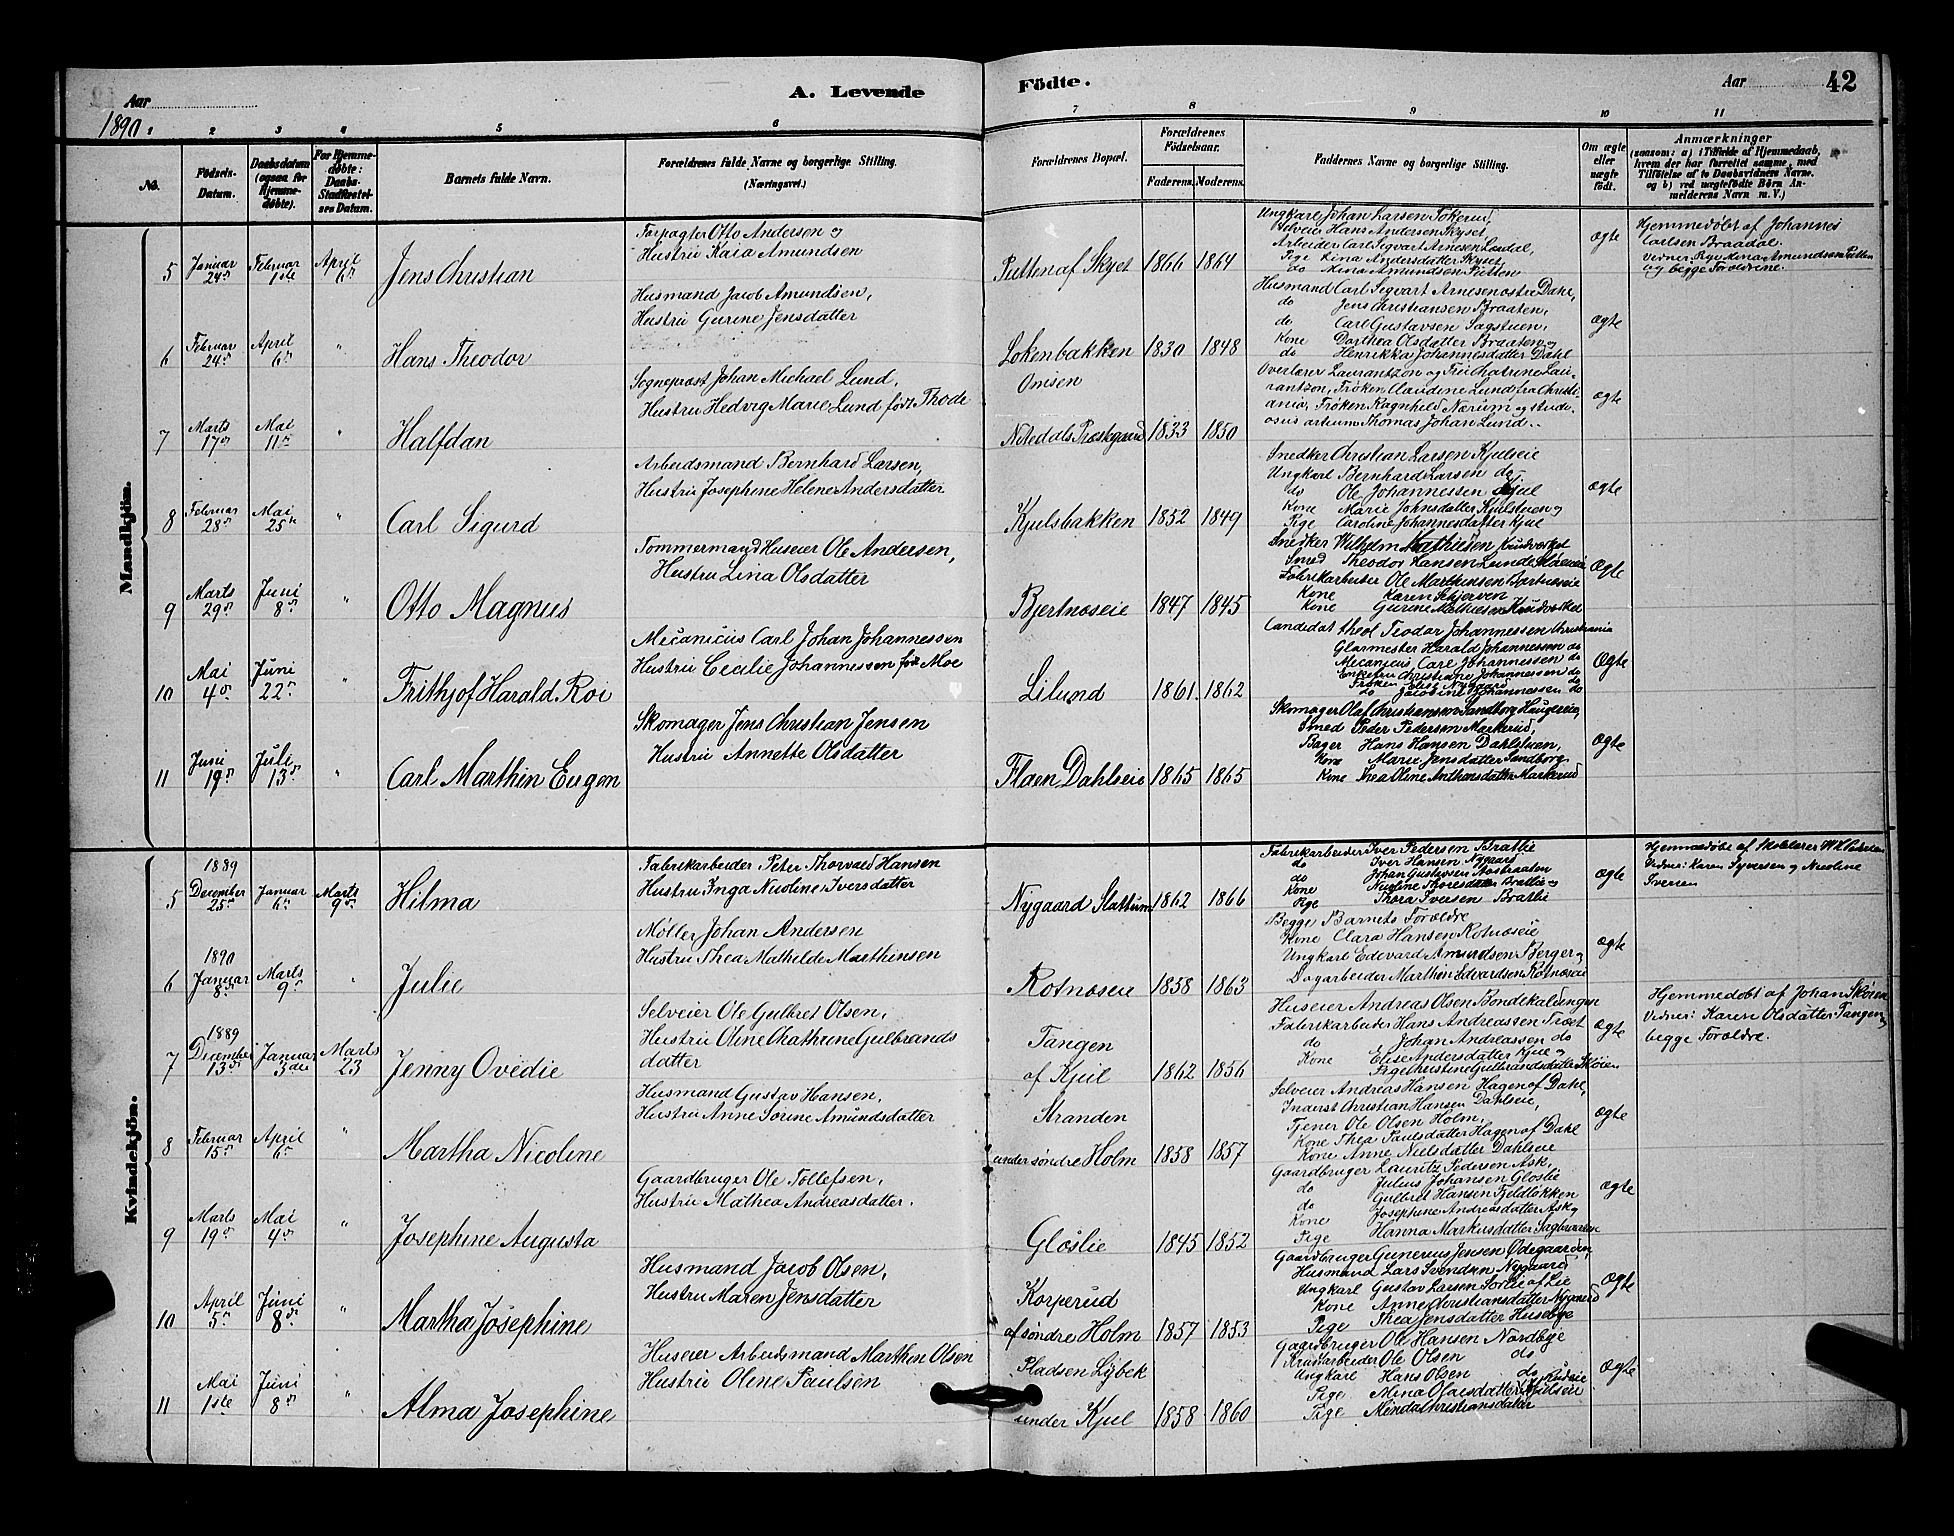 Aar
1890
A. Levende
Födte.
Aar
42
1 2 3 4 5 6 7 8 9 10 11
No.
Födsels-
Datum.
Daabsdatum
(ogsaa for
Hjemme-
døbte).
For Hjemme-
døbte:
Daabs-
Stadfæstel-
ses Datum.
Barnets fulde Navn.
Forældrenes fulde Navne og borgerlige Stilling.
(Næringsvei.)
Forældrenes Bopæl.
Forældrenes
Födselsaar.
Faderens. Moderens.
Faddernes Navne og borgerlige Stilling.
Om ægte
eller
uægte
födt.
Anmærkninger
(saasom: a) i Tilfælde af Hjemmedaab,
hvem der har forrettet samme, med
Tilføielse af to Daabsvidners Navne.
og b) ved uægtefödte Börn An-
melderens Navn m. V.)
Mandkjön.
5
Januar
24de
Februar
1ste
April
6te
Jens Christian
Forpagter Otto Andersen og
Hustru Kaia Amundsen
Putten af Skyset
1866
1864
Ungkarl Johan Larsen Tøkerud
Selveier Hans Andersen Skyset
Arbeider Carl Sigvart Arnesen
Pige Lina Andersdatter Skyset
do Mina Amundsen Putten
Ægte
Hjemmedøbt af Johannes
Carlsen Braadal.
Vidner: Pige Mina Amundsen Putten
og begge Forældrene.
6
Februar
24de
April
6te
"
Hans Theodor
Husmand Jacob Amundsen,
Hustru Gurine Jensdatter
Løkenbakken
1830
1848
Husmand Carl Sigvart Arnesen østre Dahl,
do Jens Christiansen Braaten,
do Carl Gustavsen Sagstuen,
Kone Dorthea Olsdatter Braaten og
do Henrikka Johannesdatter Dahl
Ægte
7
Marts
17de
Mai
11te
"
Halfdan
Sogneprest Johan Michael Lund,
Hustru Hedvig Marie Lund født Thode
Nitedals Præstegaard
1833
1850
Overlærer Laurantzon og Frü Chatrine Lau-
rantzon, Frøken Claudine Lund fra Christi-
ania, Frøken Ragnhild Nærum og stude-
osus artium Thomas Johan Lund.
Ægte
8
Februar
28de
Mai
25te
"
Carl Sigurd
Arbeidsmand Bernhard Larsen,
Hustru Josephine Helene Andersdatter
Kjulsbakken
1852
1849
Snedker Christian Larsen Kjulseie
Ungkarl Bernhard Larsen do
do Ole Johannessen Kjul
Kone Marie Johnsdatter Kjulstuen og
Pige Caroline Johannesdatter Kjul
Ægte
9
Marts
29de
Juni
8de
"
Otto Magnus
Tømmermand Huseier Ole Andersen,
Hustru Lina Olsdatter
Bjertnæseie
1847
1845
Snedker Wilhelm Mathiesen
Smed Theodor Hansen
Fabrikarbeider Ole Marthinsen
Kone Karen Skjerven
Kone Gurine Mathiesen
Ægte
10
Mai
4de
Juni
22de
"
Frithjof Harald Roi
Mecanicus Carl Johan Johannessen
Hustru Cecilie Johannessen født Moe
Lilund
1861
1862
Candidat theol Teodor Johannessen Christiania
Glarmester Harald Johannessen do
Mecanicus Carl Johannessen do
Enkefru Christiane Johannessen do
Frøken Elise Nygaard do
do Jacobine Johannessen do
Ægte
11
Juni
19de
Juli
13de
"
Carl Marthin Eugen
Skomager Jens Christian Jensen
Hustru Annette Olsdatter
Flaen Dahlseie
1865
1865
Skomager Olaf Christiansen Sandborg Haugereie,
Smed Peder Pedersen Markerud,
Bager Hans Hansen Dahlstuen,
Kone Marie Jensdatter Sandborg,
Kone Thea Oline Anthonsdatter Markerud
Ægte
Kvindekjön.
5
1889
December
25de
Januar
6te
Marts
9de
Hilma
Fabrikarbeider Peter Thorvald Hansen
Hustru Inga Nicoline Iversdatter
Nygaard Slattum
1862
1866
Fabrikarbeider Iver Pedersen Bratlie
do Iver Hansen Nygaard
do Johan Gustavsen
Kone Nicoline Thoresdatter Bratlie og
Pige Thora Iversen Bratlie
Ægte
Hjemmedøbt af Skolelærer
Vidner: Karen Syversen og Nicoline
Iversen
6
1890
Januar
8de
Marts
9de
"
Julie
Møller Johan Andersen
Hustru Thea Mathilde Marthinsen
Rotnæseie
1858
1863
Begge Barnets Forældre
Kone Clara Hansen Rotnæseie
Ungkarl Edevard Amundsen Berger og
Dagarbeider Marthin Edvardsen Rotnæseie
Ægte
7
1889
December
13de
Januar
3die
Marts
23
Jenny Ovidie
Selveier Ole Gulbret Olsen,
Hustru Oline Chathrine Gulbrands
datter
Tangen
af Kjul
1862
1856
Huseier Andreas Olsen Bondekalungen
Fabrikarbeider Hans Andreassen Træet
do Johan Andreassen do
Kone Elise Andersdatter Kjul og
Pige Christine Gulbrandsdatter Skøien
Ægte
Hjemmedøbt af Johan Skøien
Vidner: Karen Olsdatter Tangen og
begge Forældre.
8
Februar
15de
April
6te
"
Martha Nicoline
Husmand Gustav Hansen,
Hustru Anne Sørine Amundsdatter
Stranden
under søndre Holm
1858
1857
Selveier Andreas Hansen Hagen af Dahl,
Inderst Christian Hansen Dahlseie,
Tjener Ole Olsen Holm,
Kone Thea Paulsdatter Hagen af Dahl
Kone Anne Nielsdatter Dahlseie
Ægte
9
Marts
19de
Mai
4de
"
Josephine Augusta
Gaardbruger Ole Tollefsen,
Hustru Mathea Andreasdatter.
Gløslie
1845
1852
Gaardbruger Lauritz Pedersen Ask,
do Julius Johansen Gloslie
do Gulbret Hansen Fjeldløkken
Kone Josephine Andreasdatter Ask og
Pige Hanna Markusdatter
Ægte
10
April
5te
Juni
8de
"
Martha Josephine
Husmand Jacob Olsen,
Hustru Maren Jensdatter
Korperud
af søndre Holm
1857
1853
Gaardbruger Gunerius Jensen Ødegaarden,
Husmand Lars Svendsen Nygaard
Ungkarl Gustav Larsen Sørlie af Lie
Kone Anne Christiansdatter Nygaard
Pige Thea Jensdatter Husebye
Ægte
11
Mai
1ste
Juni
8de
"
Alma Josephine
Huseier Arbeidsmand Marthin Olsen
Hustru Oline Paulsen
Pladsen Lybek
under Kjul
1858
1860
Gaardbruger Ole Hansen Nordbye
Krudtarbeider Ole Olsen do
Ungkarl Hans Olsen do
Pige Mina Olausdatter Kjulseie
Pige Minda Christiansdatter
Ægte